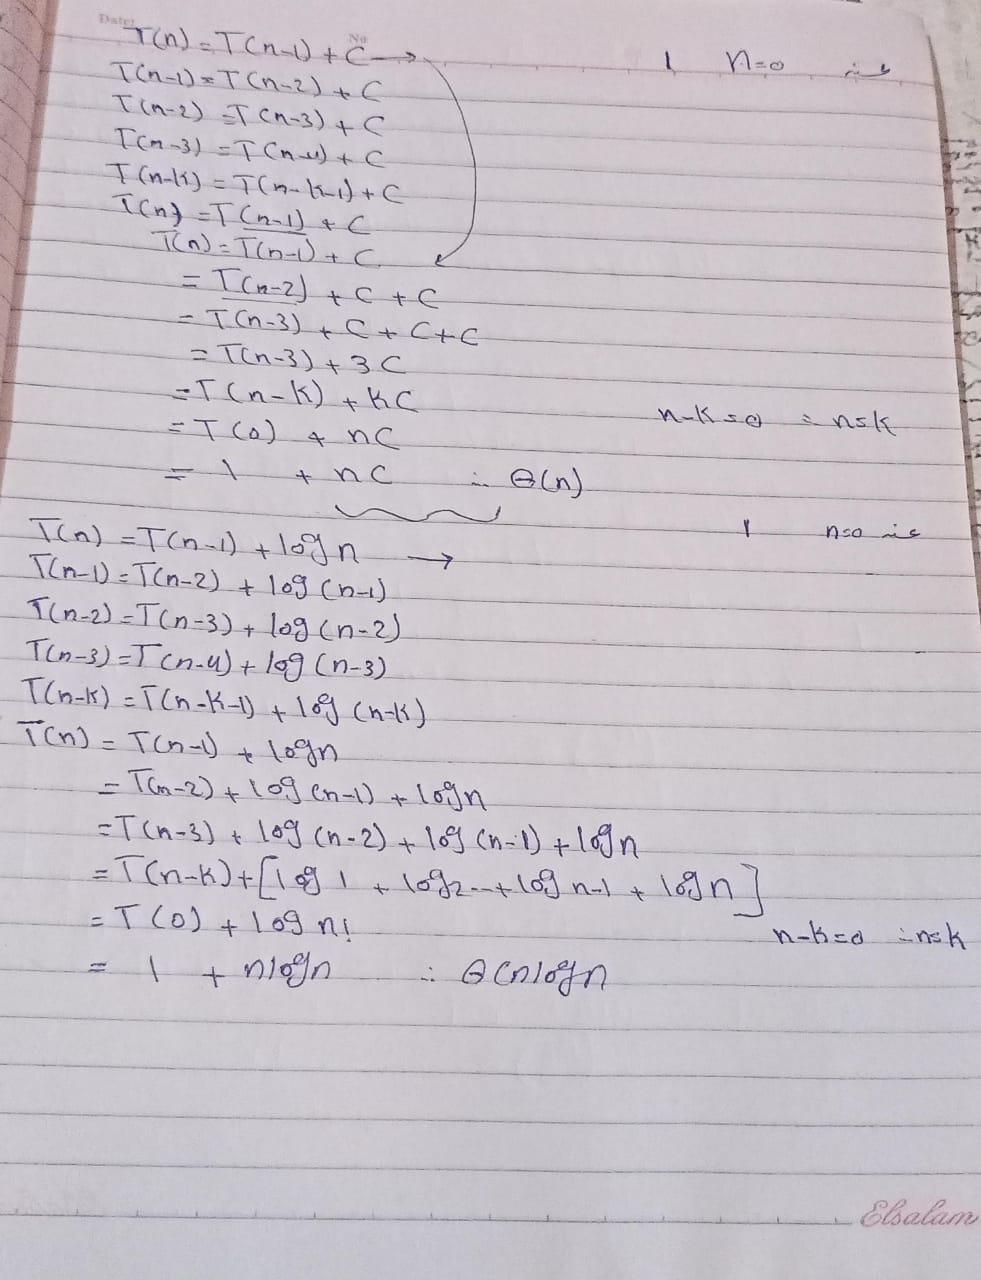 Date:
No
T(n) = T(n-1) + C → 1 n=0 عند
T(n-1) = T(n-2) + C
T(n-2) = T(n-3) + C
T(n-3) = T(n-4) + C
T(n-k) = T(n-k-1) + C
T(n) = T(n-1) + C
T(n) = T(n-1) + C
= T(n-2) + C + C
= T(n-3) + C + C + C
= T(n-3) + 3C
= T(n-k) + KC
= T(0) + nC n-k=0 ∴ n=k
= 1 + nC ∴ Θ(n)
T(n) = T(n-1) + log n → 1 n=0 عند
T(n-1) = T(n-2) + log (n-1)
T(n-2) = T(n-3) + log (n-2)
T(n-3) = T(n-4) + log (n-3)
T(n-k) = T(n-k-1) + log (n-k)
T(n) = T(n-1) + log n
= T(n-2) + log (n-1) + log n
= T(n-3) + log (n-2) + log (n-1) + log n
= T(n-k) + [log 1 + log 2 --+ log n-1 + log n]
= T(0) + log n! n-k=0 ∴ n=k
= 1 + n log n ∴ Θ(n log n
Elsalam